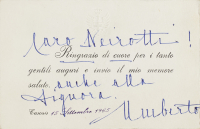 Caro Neirotti!
Ringrazio di cuore per i tanto
gentili auguri e invio il mio memore
saluto. anche alla
Signora.
Umberto
15 Settembre 1965